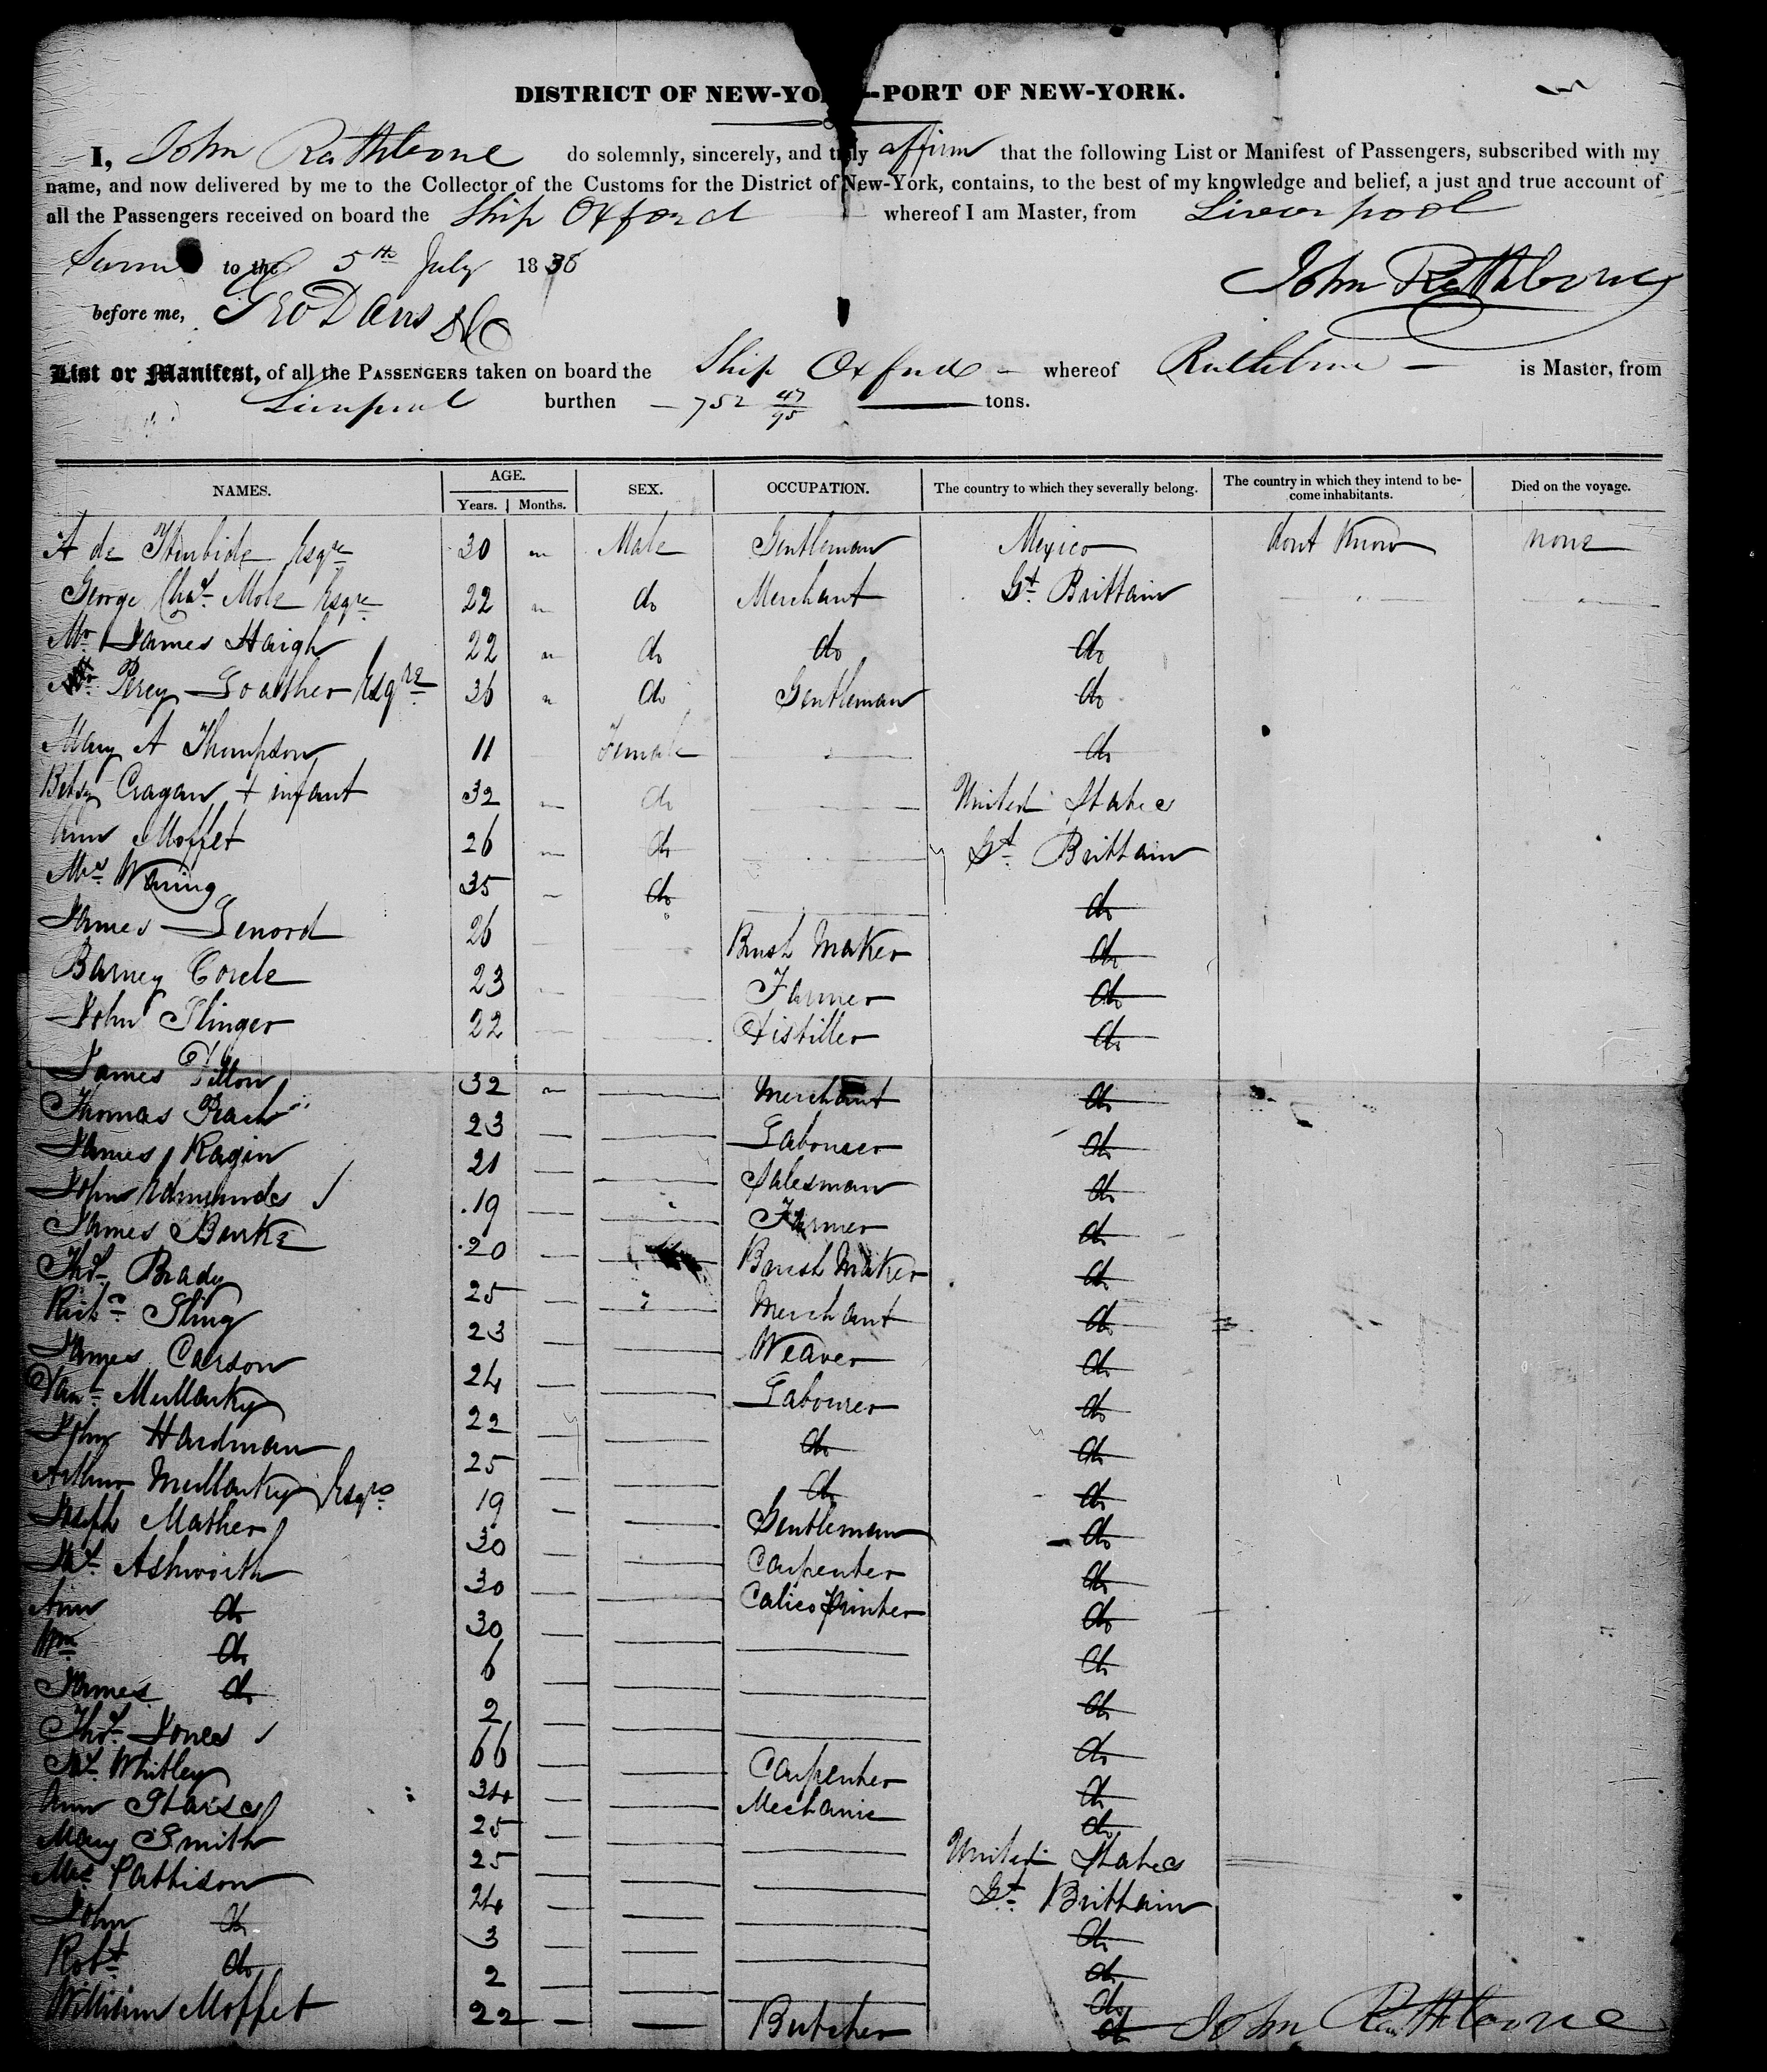 DISTRICT OF NEW-YO -PORT OF NEW-YORK.
I, John Rathbone do solemnly, sincerely, and truly affirm that the following List or Manifest of Passengers, subscribed with my
name, and now delivered by me to the Collector of the Customs for the District of New-York, contains, to the best of my knowledge and belief, a just and true account of
all the Passengers received on board the Ship Oxford whereof I am Master, from Liverpool
to the 5th July 1836
John Rathbone
before me, Geo Davis
List or Manifest, of all the PASSENGERS taken on board the Ship Oxford — whereof Rathbone — is Master, from
Liverpool burthen — 752 47/95 tons.
NAMES. AGE. Years. Months. SEX. OCCUPATION. The country to which they severally belong. The country in which they intend to become inhabitants. Died on the voyage.
A de Iturbide Esqre 30 Male Gentleman Mexico dont Know none
George Chas. Mole Esqre 22 do Merchant Gt. Brittain
Mr James Haigh 22 do do do
Percy Goather Esqre 36 do Gentleman do
Mary A Thompson 11 Female do
Betsy Cragan + infant 32 do United States
Ann Moffet 26 do Gt. Brittain
Mrs Waring 35 do do
James Lenord 26 Brush Maker do
Barney Corele 23 Farmer do
John Slinger 22 Distiller do
James Dillon 32 Merchant do
Thomas 23 Labourer do
James Ragin 21 Salesman do
John Edmundes 19 Farmer do
James Burke 20 Brush Maker do
Thos. Brady 25 Merchant do
Richd. Sling 23 Weaver do
James Carson 24 Labourer do
Mullarky 22 do do
John Hardman 25 do do
Arthur Mullarky Esqre 19 Gentleman do
Joseph Mather 30 Carpenter do
Ashworth 30 Calico Printer do
Ann do 30 do
Wm do 6 do
James do 2 do
Thos. Jones 66 Carpenter do
Whitley 34 Mechanic do
Ann 25 do
Mary Smith 25 United States
Mrs Pattison 24 Gt. Brittain
John do 3 do
Robt. do 2 do
William Moffet 22 Butcher do
do John Rathbone